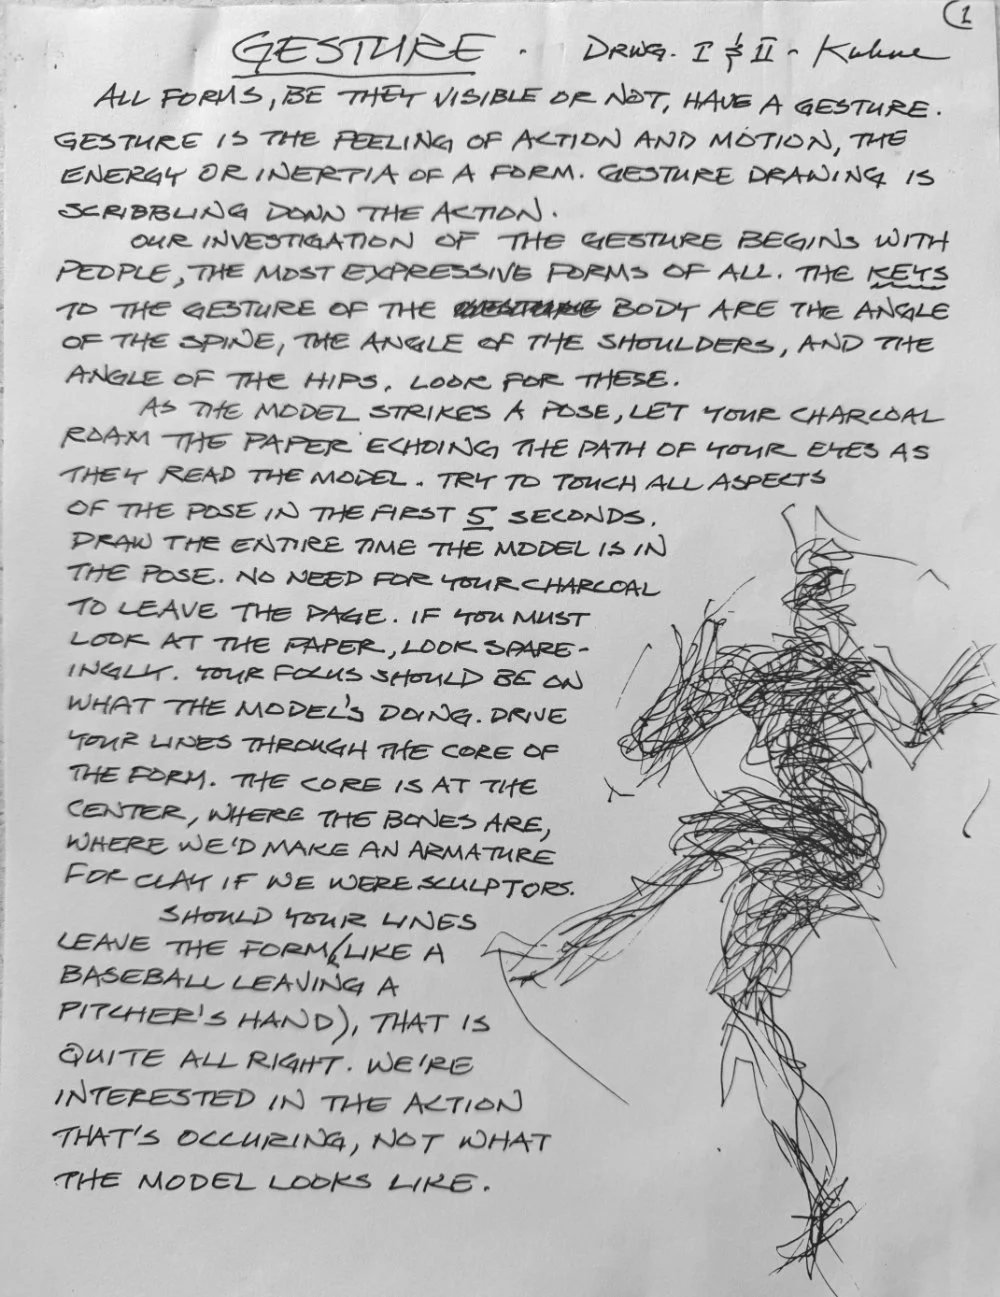 1
GESTURE · DRWG. I & II - Kuhne
ALL FORMS, BE THEY VISIBLE OR NOT, HAVE A GESTURE.
GESTURE IS THE FEELING OF ACTION AND MOTION, THE
ENERGY OR INERTIA OF A FORM. GESTURE DRAWING IS
SCRIBBLING DOWN THE ACTION.
OUR INVESTIGATION OF THE GESTURE BEGINS WITH
PEOPLE, THE MOST EXPRESSIVE FORMS OF ALL. THE KEYS
TO THE GESTURE OF THE BODY ARE THE ANGLE
OF THE SPINE, THE ANGLE OF THE SHOULDERS, AND THE
ANGLE OF THE HIPS. LOOK FOR THESE.
AS THE MODEL STRIKES A POSE, LET YOUR CHARCOAL
ROAM THE PAPER ECHOING THE PATH OF YOUR EYES AS
THEY READ THE MODEL. TRY TO TOUCH ALL ASPECTS
OF THE POSE IN THE FIRST 5 SECONDS.
DRAW THE ENTIRE TIME THE MODEL IS IN
THE POSE. NO NEED FOR YOUR CHARCOAL
TO LEAVE THE PAGE. IF YOU MUST
LOOK AT THE PAPER, LOOK SPARE-
INGLY. YOUR FOCUS SHOULD BE ON
WHAT THE MODEL'S DOING. DRIVE
YOUR LINES THROUGH THE CORE OF
THE FORM. THE CORE IS AT THE
CENTER, WHERE THE BONES ARE,
WHERE WE'D MAKE AN ARMATURE
FOR CLAY IF WE WERE SCULPTORS.
SHOULD YOUR LINES
LEAVE THE FORM (LIKE A
BASEBALL LEAVING A
PITCHER'S HAND), THAT IS
QUITE ALL RIGHT. WE'RE
INTERESTED IN THE ACTION
THAT'S OCCURING, NOT WHAT
THE MODEL LOOKS LIKE.